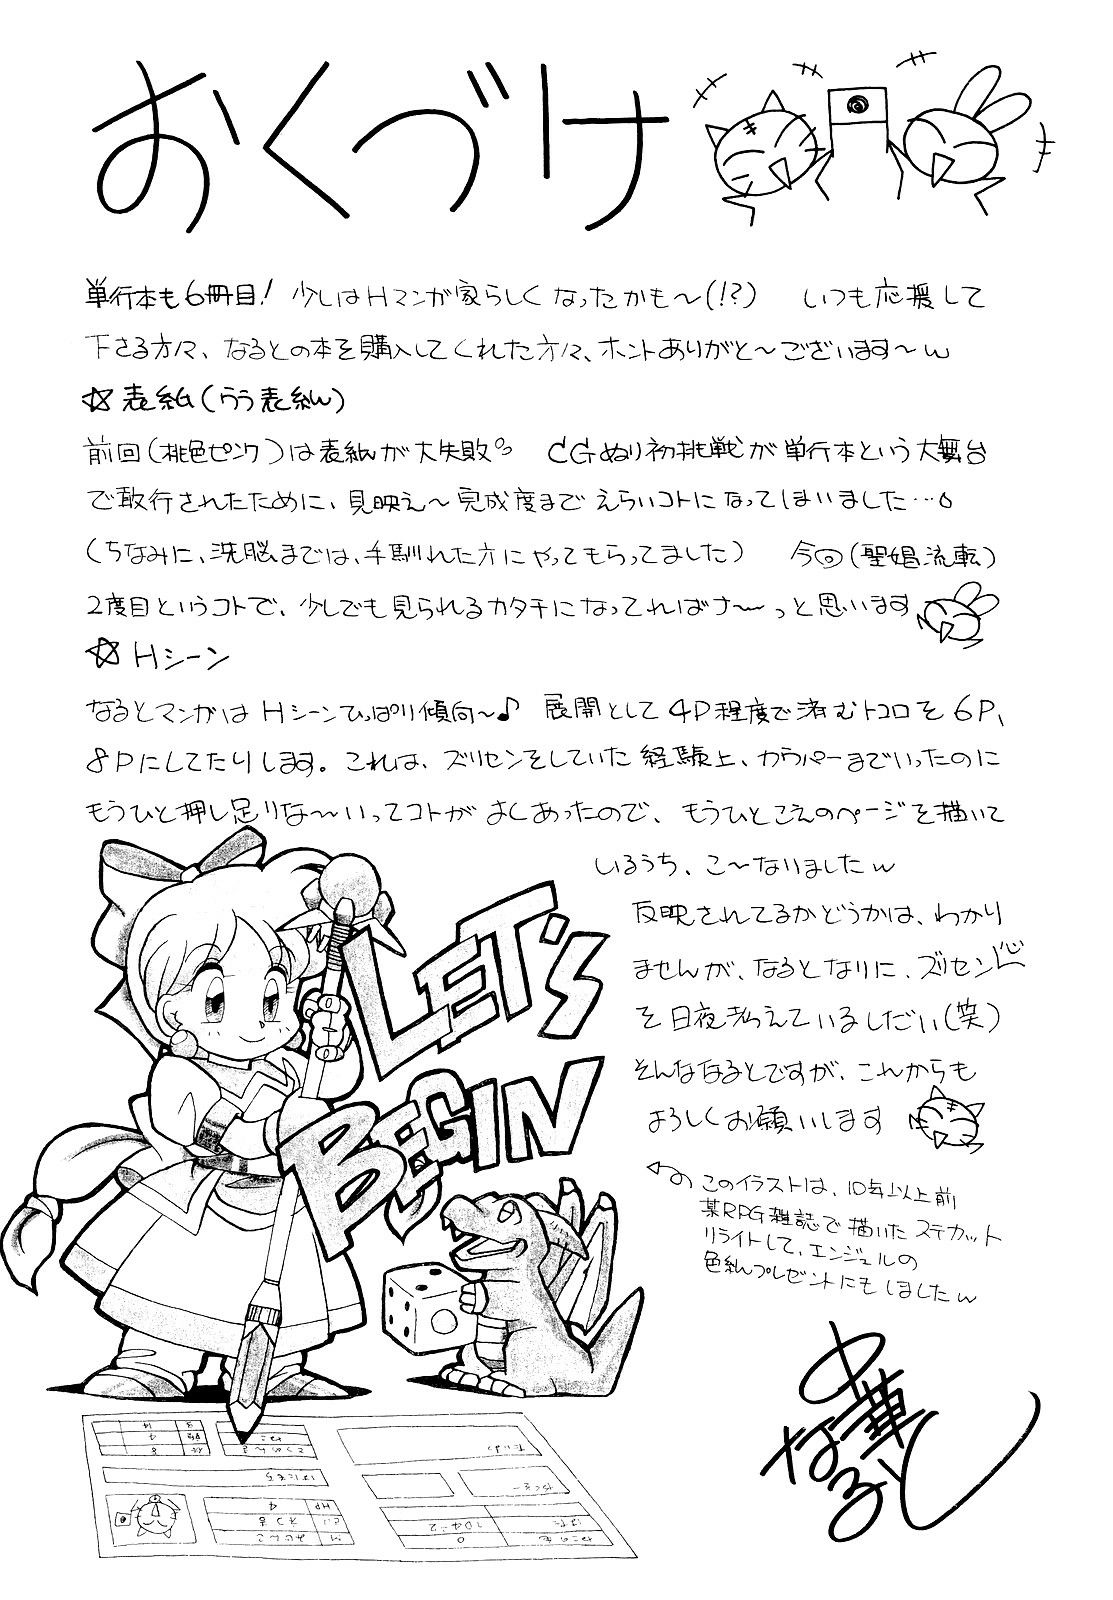 おくづけ
単行本も6冊目! 少しはHマンガ家らしくなったかも〜(!?) いつも応援して
下さる方々、なるとの本を購入してくれた方々、ホントありがと〜ございます〜w
☆表紙(うう表紙)
前回(桃色ピンク)は表紙が大失敗 CGぬり初挑戦が単行本という大舞台
で敢行されたために、見映え〜完成度までえらいコトになってしまいました…
(ちなみに、洗脳までは、手馴れた方にやってもらってました) 今回(聖娼流転)
2度目というコトで、少しでも見られるカタチになってればナ〜っと思います
☆Hシーン
なるとマンガはHシーンひっぱり傾向〜♪ 展開として4P程度で済むトコロを6P、
8Pにしてたりします。これは、ズリセンをしていた経験上、カウパーまでいったのに
もうひと押し足りな〜いってコトがよくあったので、もうひとこえのページを描いて
いるうち、こ〜なりましたw
反映されてるかどうかは、わかり
ませんが、なるとなりに、ズリセン
を日夜考えているしだい(笑)
そんななるとですが、これからも
よろしくお願いします
LET'S
BEGIN
このイラストは、10年以上前
某RPG雑誌で描いたステカット
リライトして、エンジェルの
色紙プレゼントにもしましたw
中華
なると